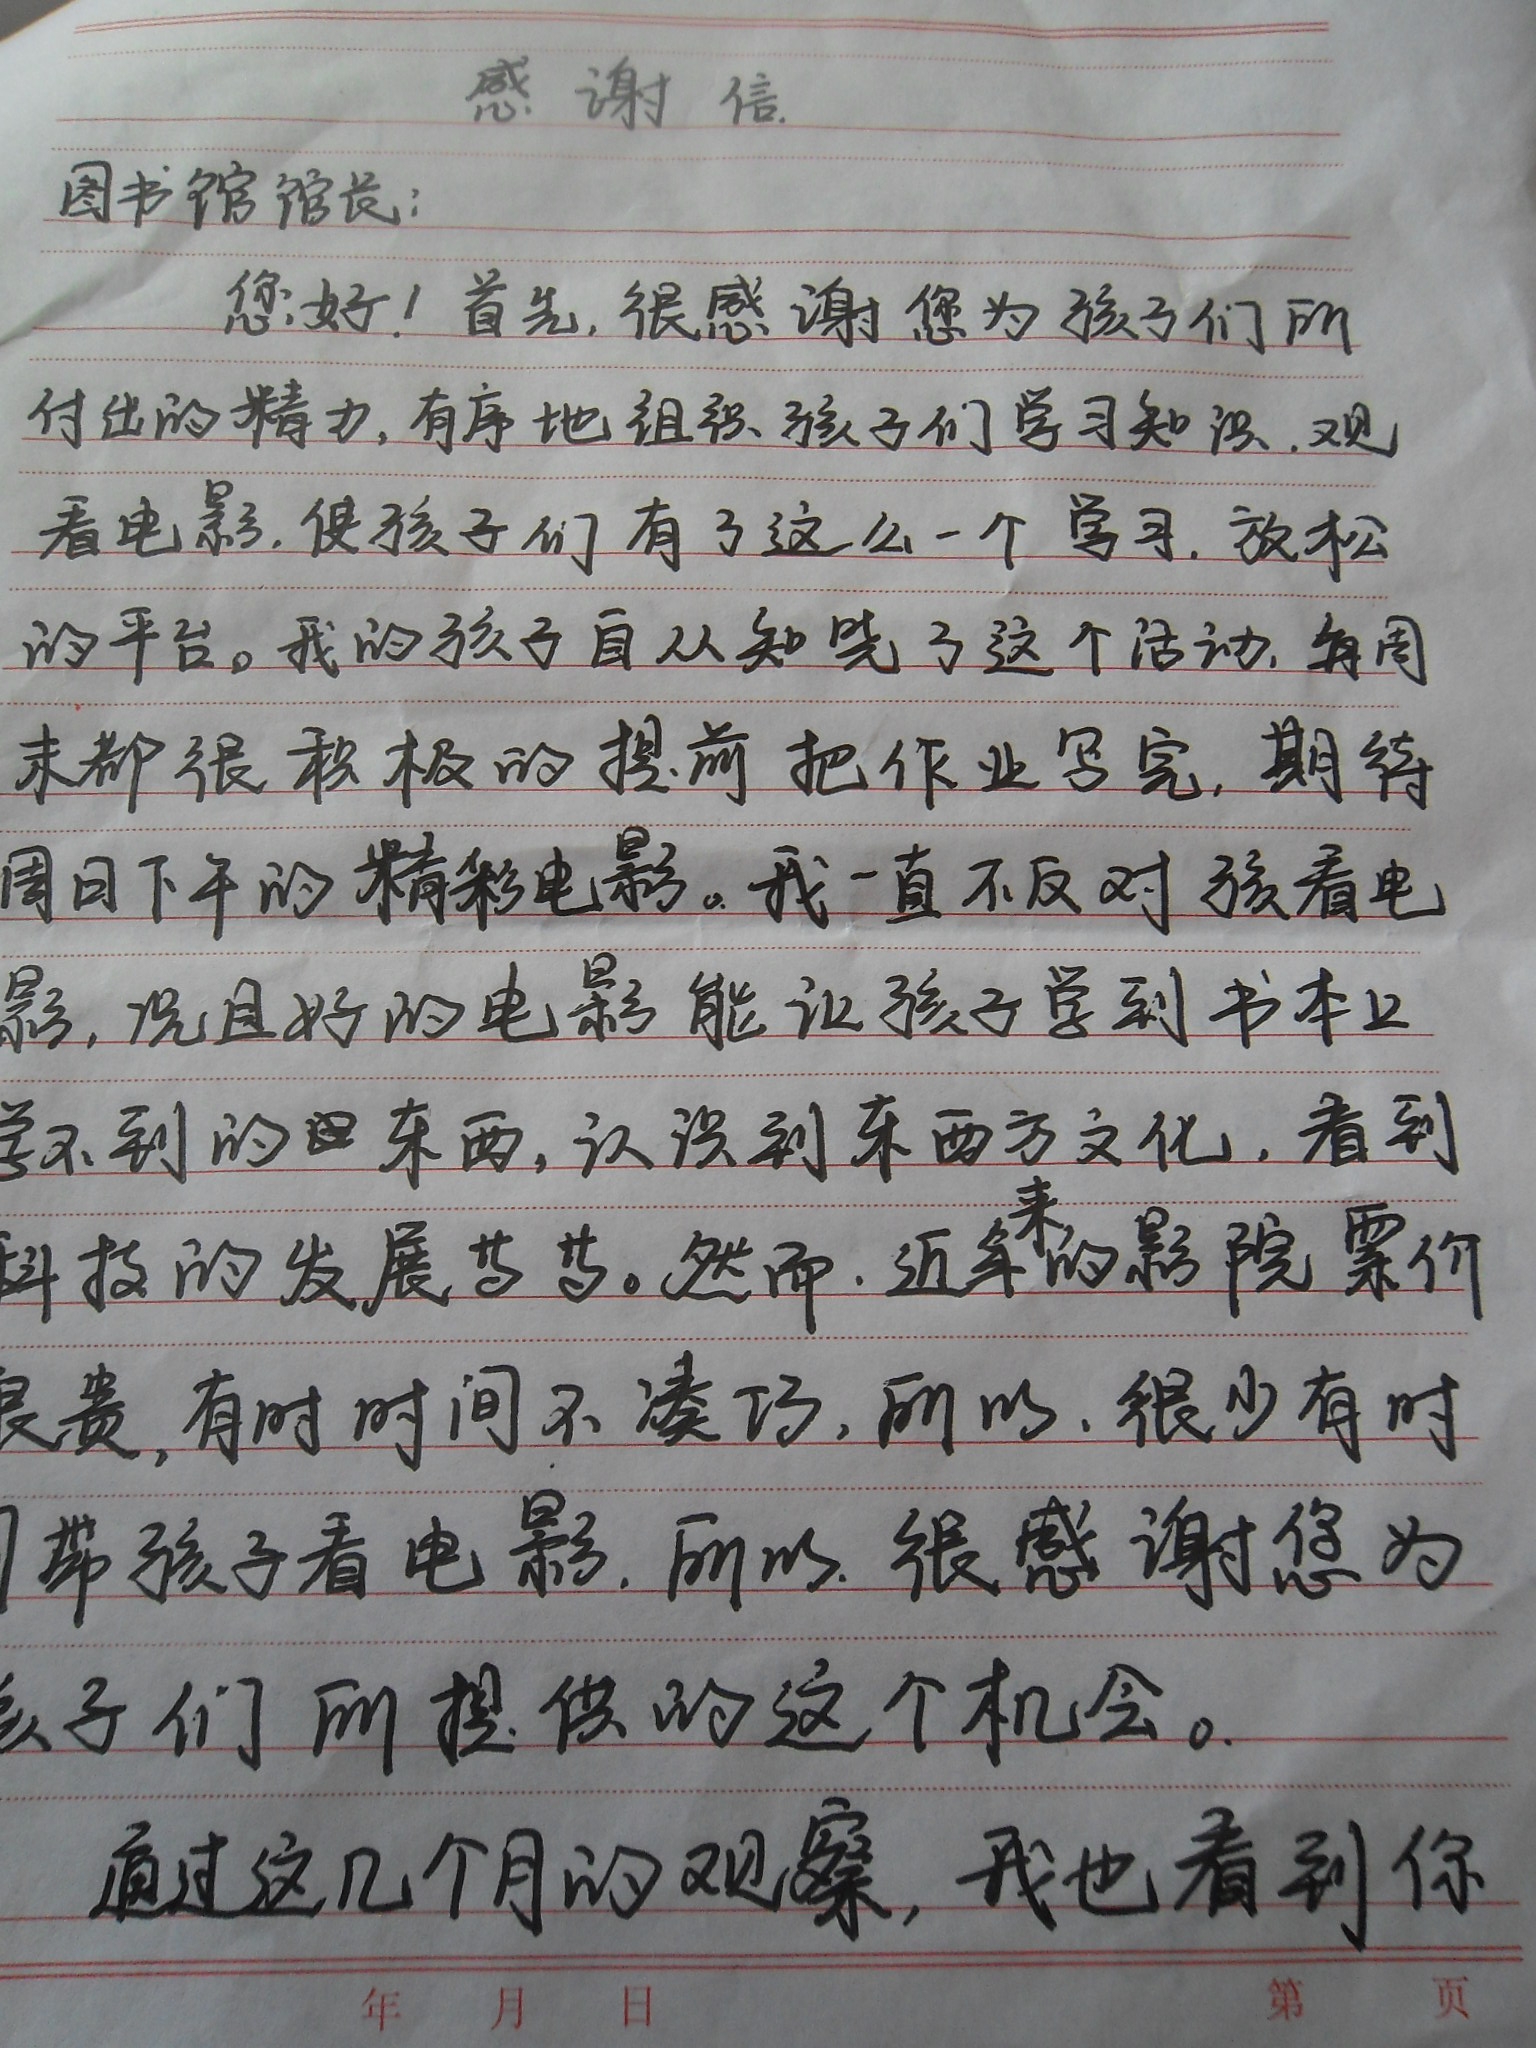 感谢信.
图书馆馆长:
您好！首先,很感谢您为孩子们所
付出的精力,有序地组织孩子们学习知识,观
看电影,使孩子们有了这么一个学习,放松
的平台。我的孩子自从知晓了这个活动,每周
末都很积极的提前把作业写完,期待
周日下午的精彩电影。我一直不反对孩看电
影,况且好的电影能让孩子学到书本上
学不到的东西,认识到东西方文化,看到
科技的发展等等。然而,近年来的影院票价
很贵,有时时间不凑巧,所以,很少有时
间带孩子看电影,所以,很感谢您为
孩子们所提供的这个机会。
通过这几个月的观察,我也看到你
年 月 日 第 页